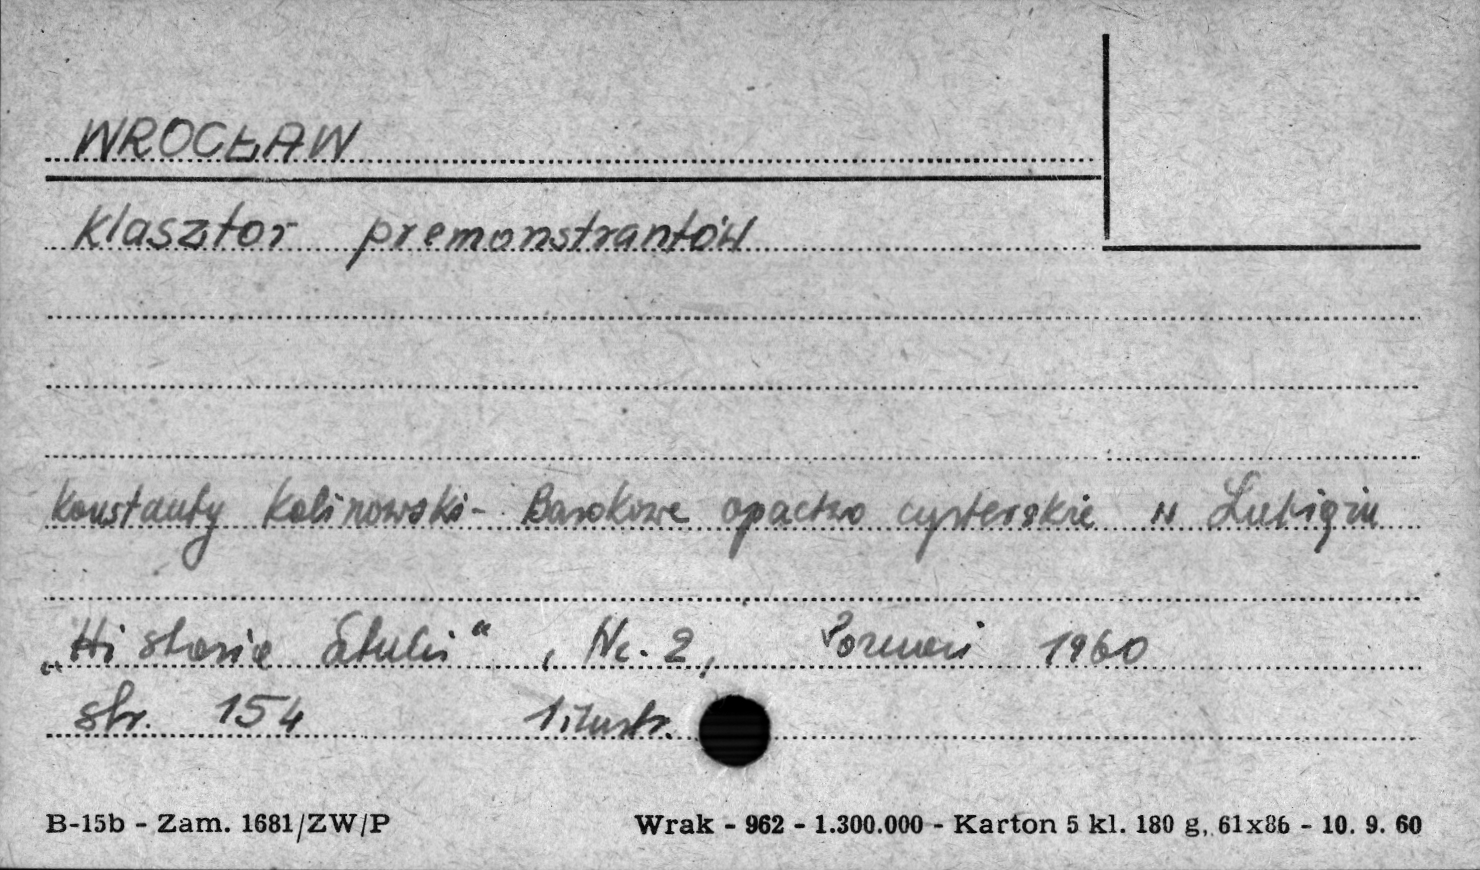 WROCŁAW
klasztor premonstrantów
Konstanty Kalinowski - Barokowe opactwo cysterskie w Lubiążu
„Historia Sztuki“, Nr. 2, Poznań 1960
str. 154 1 ilustr.
B-15b - Zam. 1681/ZW/P Wrak - 962 - 1.300.000 - Karton 5 kl. 180 g, 61x86 - 10. 9. 60